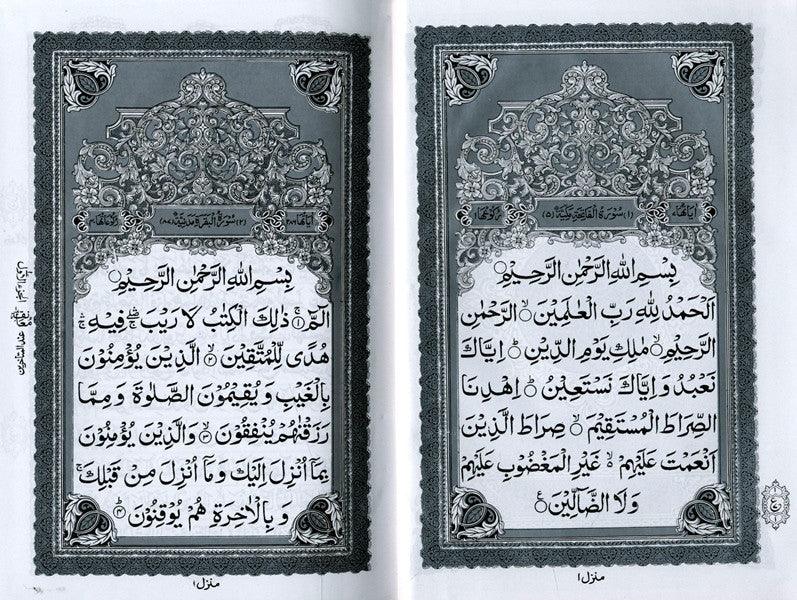 اٰيَاتُهَا ٧
(١) سُوْرَةُ الْفَاتِحَةِ مَكِّيَّةٌ (٥)
رُكُوْعُهَا ١
بِسْمِ اللهِ الرَّحْمٰنِ الرَّحِيْمِ ○
اَلْحَمْدُ لِلّٰهِ رَبِّ الْعٰلَمِيْنَ ۙ الرَّحْمٰنِ
الرَّحِيْمِ ۙ مٰلِكِ يَوْمِ الدِّيْنِ ؕ اِيَّاكَ
نَعْبُدُ وَ اِيَّاكَ نَسْتَعِيْنُ ؕ اِهْدِنَا
الصِّرَاطَ الْمُسْتَقِيْمَ ۙ صِرَاطَ الَّذِيْنَ
اَنْعَمْتَ عَلَيْهِمْ ۙ غَيْرِ الْمَغْضُوْبِ عَلَيْهِمْ
وَ لَا الضَّآلِّيْنَ ع
منزل ١
اٰيَاتُهَا ٢٨٦
(٢) سُوْرَةُ الْبَقَرَةِ مَدَنِيَّةٌ (٨٧)
رُكُوْعَاتُهَا ٤٠
بِسْمِ اللهِ الرَّحْمٰنِ الرَّحِيْمِ ○
الٓمّٓ ۚ ١ ذٰلِكَ الْكِتٰبُ لَا رَيْبَ ۛۖ فِيْهِ ۛ
هُدًى لِّلْمُتَّقِيْنَ ۙ الَّذِيْنَ يُؤْمِنُوْنَ
بِالْغَيْبِ وَ يُقِيْمُوْنَ الصَّلٰوةَ وَ مِمَّا
رَزَقْنٰهُمْ يُنْفِقُوْنَ ۙ وَالَّذِيْنَ يُؤْمِنُوْنَ
بِمَاۤ اُنْزِلَ اِلَيْكَ وَ مَاۤ اُنْزِلَ مِنْ قَبْلِكَ ۚ
وَ بِالْاٰخِرَةِ هُمْ يُوْقِنُوْنَ ؕ ٤
منزل ١